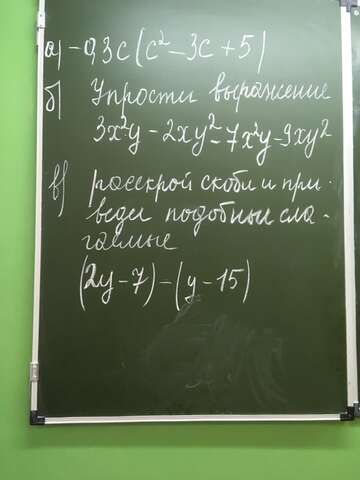 а) -0,3c (c² - 3c + 5)
б) Упрости выражение
3x²y - 2xy² - 7x²y - 9xy²
в) раскрой скобки и при-
веди подобные сла-
гаемые
(2y - 7) - (y - 15)